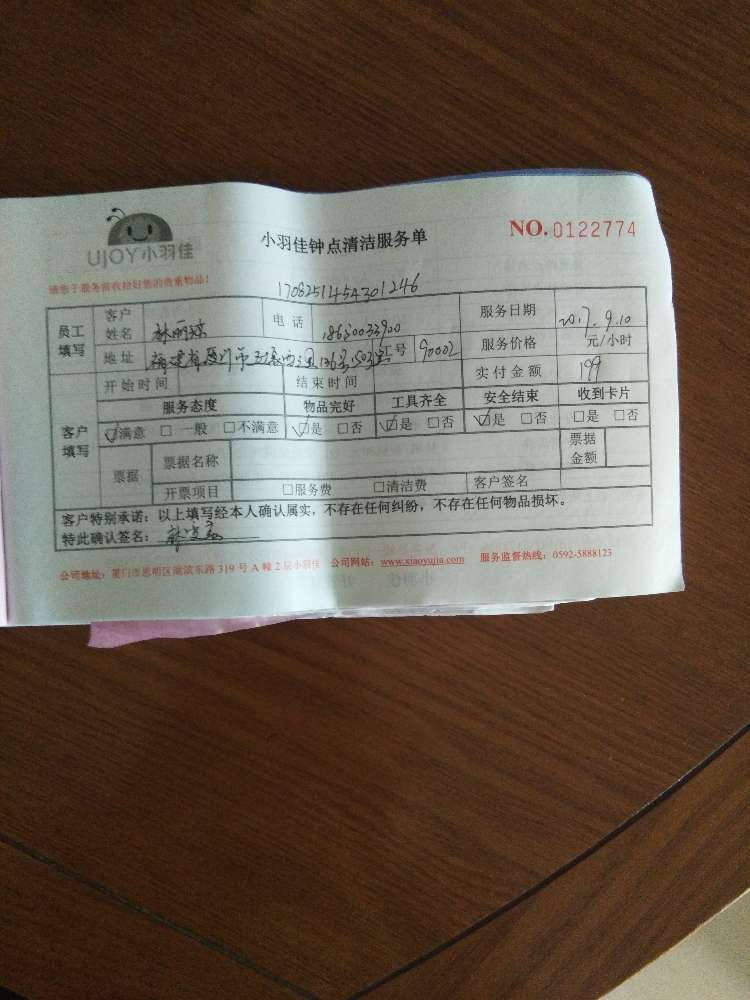 UJOY小羽佳
小羽佳钟点清洁服务单
NO.0122774
请您于服务前收拾好您的贵重物品！
1708251454301246
员工填写 客户姓名 林丽琼 电话 服务日期 2017.9.10
地址 福建省厦门市 126号1503室 工号 90002 服务价格 元/小时
开始时间 结束时间 实付金额 199
服务态度 物品完好 工具齐全 安全结束 收到卡片
客户填写 ☑满意 □一般 □不满意 ☑是 □否 ☑是 □否 ☑是 □否 □是 □否
票据 票据名称 票据金额
开票项目 □服务费 □清洁费 客户签名
客户特别承诺：以上填写经本人确认属实，不存在任何纠纷，不存在任何物品损坏。
特此确认签名：
公司地址：厦门市思明区湖滨东路319号A幢2层小羽佳 公司网站：www.xiaoyujia.com 服务监督热线：0592-5888123